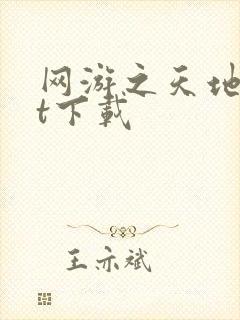 网游之天地
t下载
王亦斌